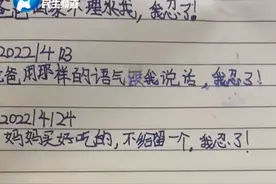 民生频道
爸爸回家不理我,我忍了!
2022/4/13
爸爸用那样的语气跟我说话,我忍了!
2022/4/24
妈妈买好吃的,不给留一个,我忍了!